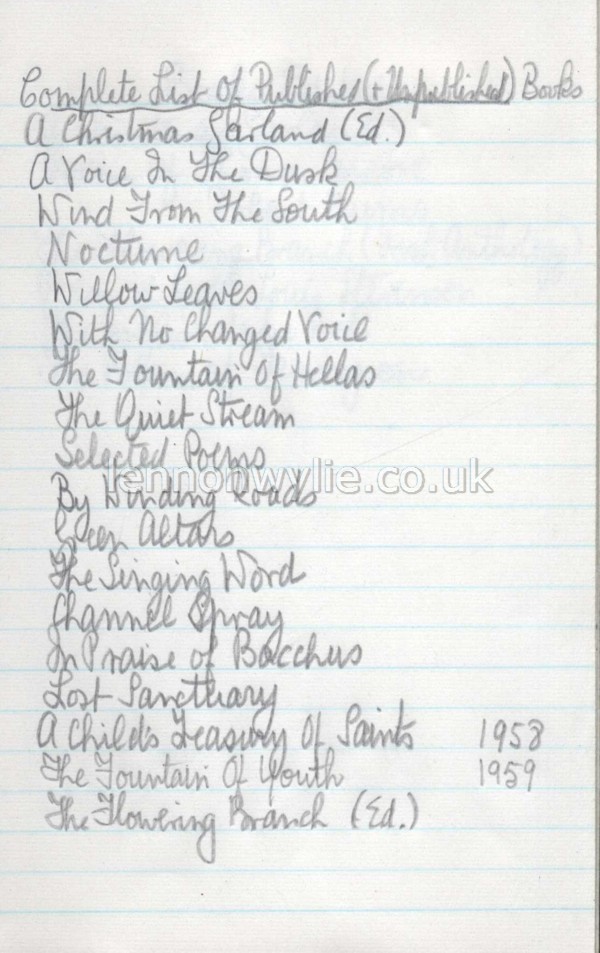 Complete List Of Published (+ Unpublished) Books
A Christmas Garland (Ed.)
A Voice In The Dusk
Wind From The South
Nocturne
Willow Leaves
With No Changed Voice
The Fountain Of Hellas
The Quiet Stream
Selected Poems
lennonwylie.co.uk
By Winding Roads
Green Altars
The Singing Word
Channel Spray
In Praise of Bacchus
Lost Sanctuary
A Child's Treasury Of Saints 1958
The Fountain Of Youth 1959
The Flowering Branch (Ed.)